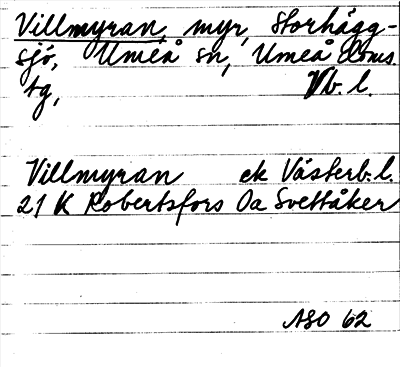 Villmyran, myr, Storhägg-
sjö, Umeå sn, Umeå doms.
tg, Vb. l.
Villmyran ek Västerb. l.
21 K Robertsfors 0a Svettåker
ASO 62